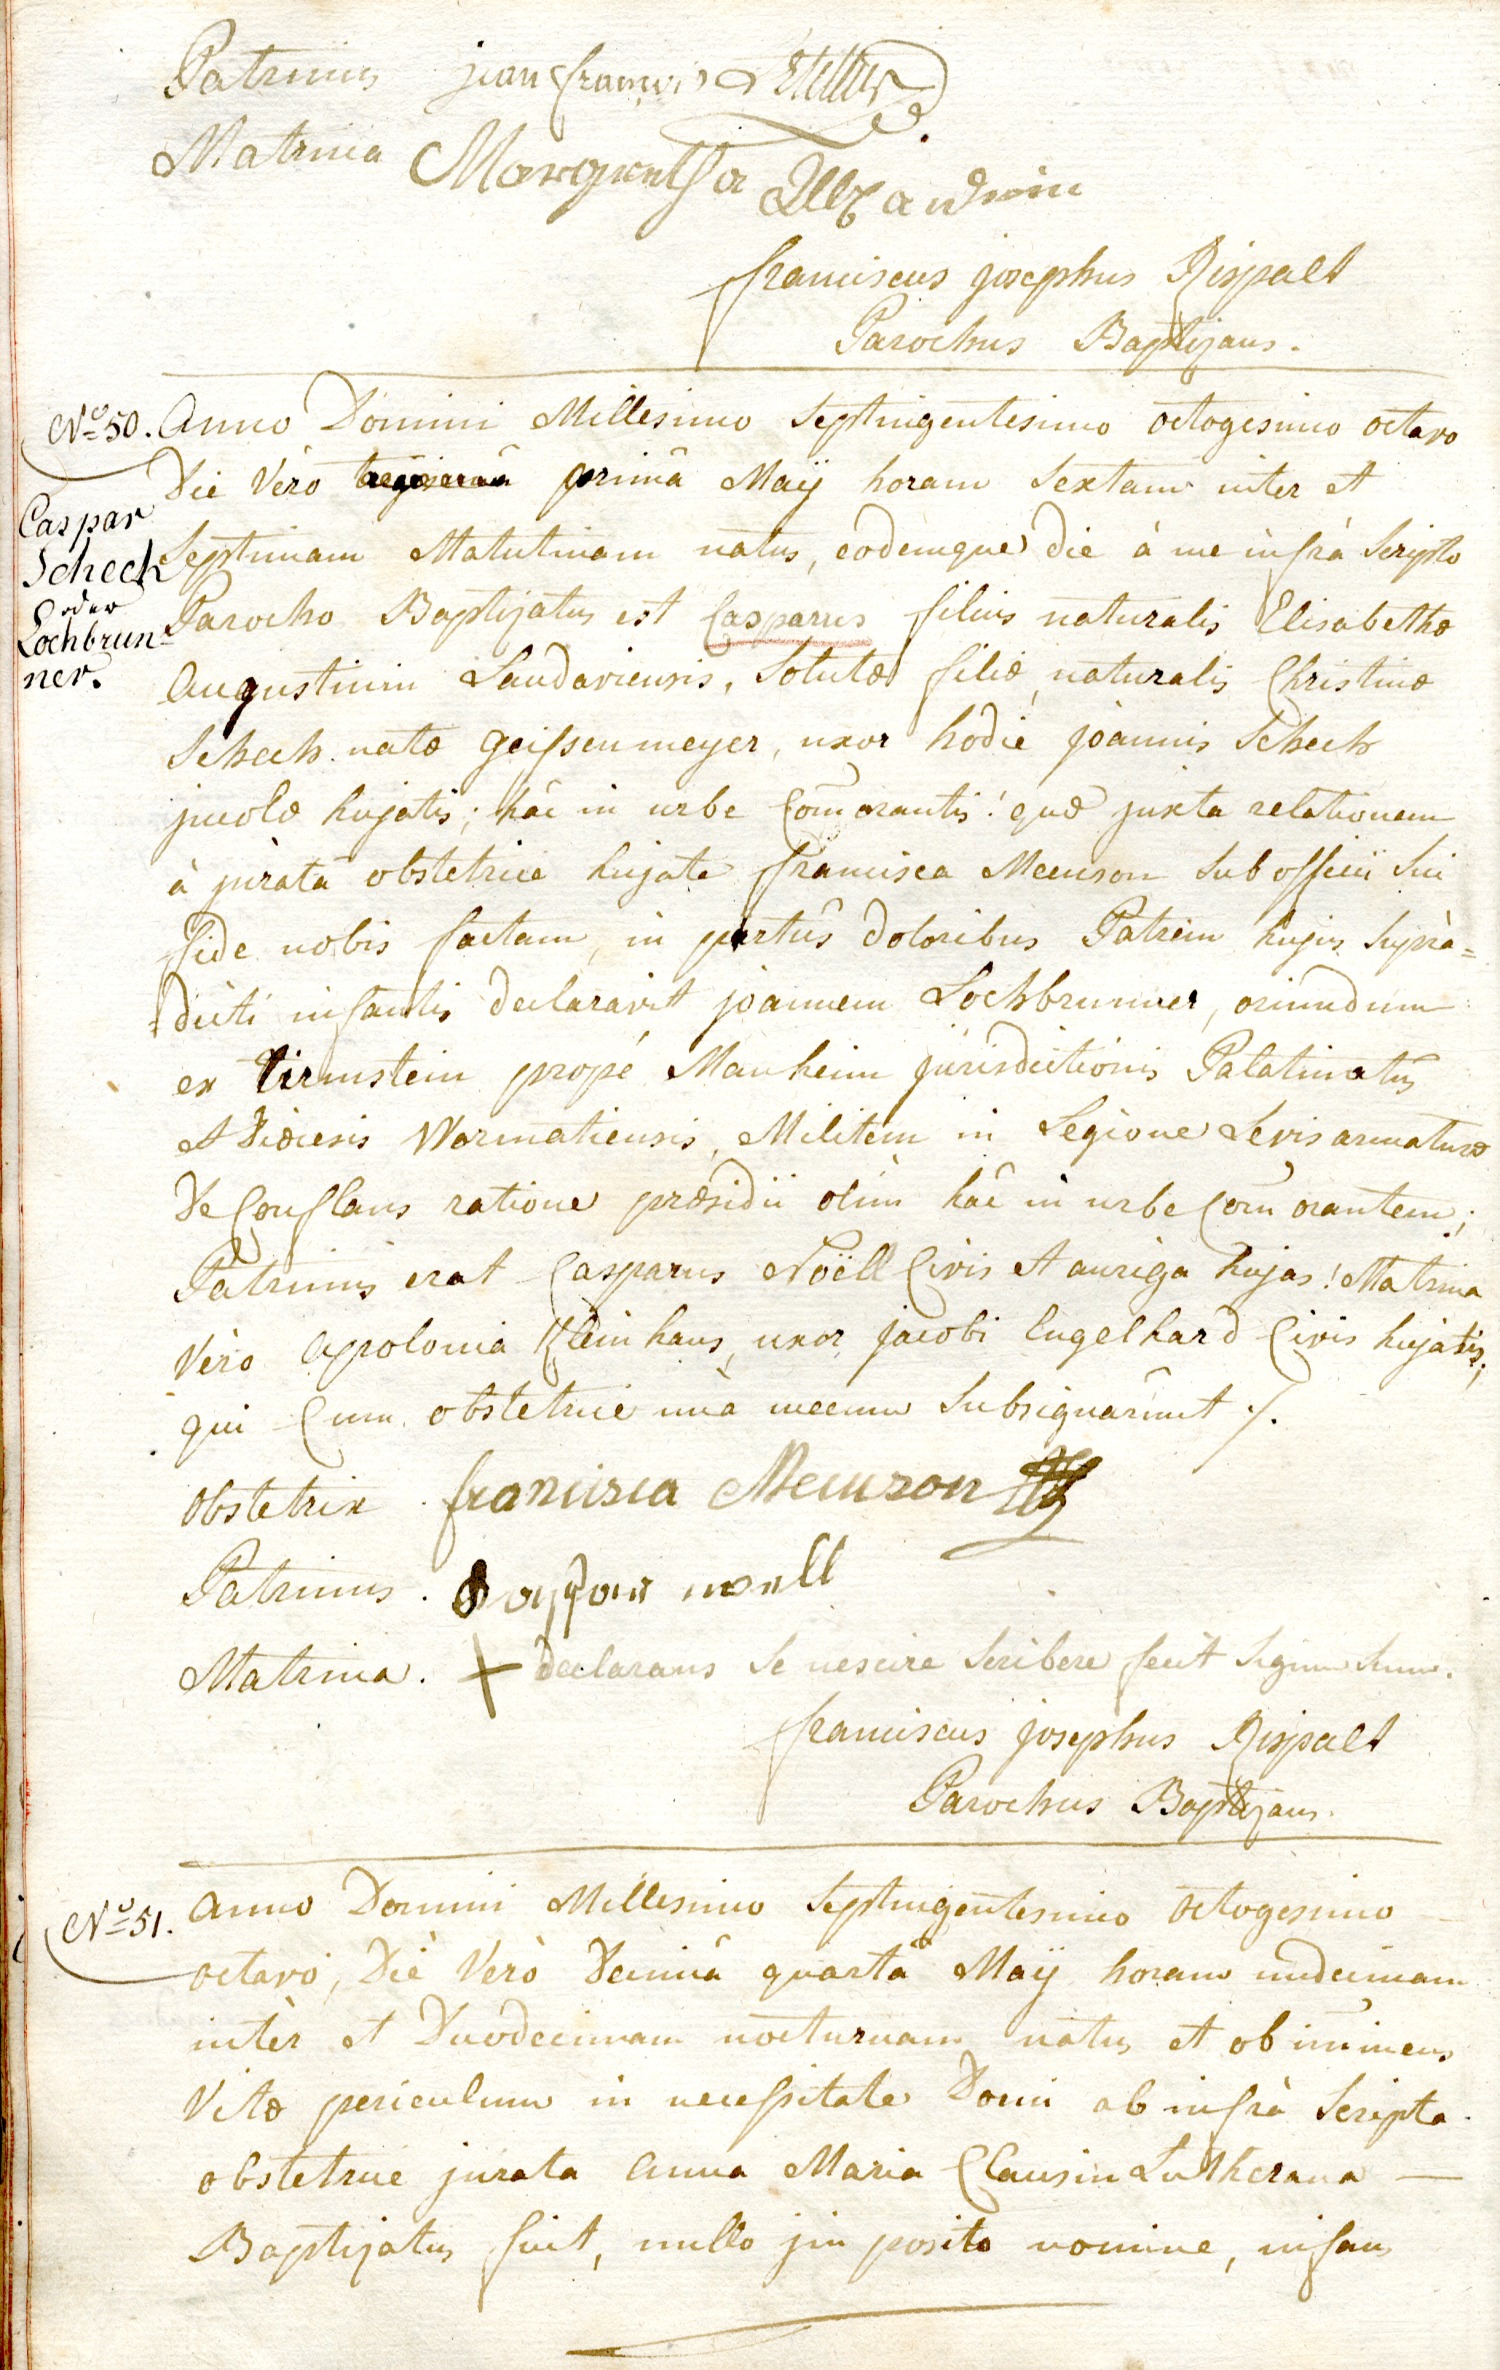 Patrinus jean françois
Matrina Margretha
franciscus josephus Rispalt
Parochus Baptizans.
No 50. Anno Domini Millesimo Septingentesimo octogesimo octavo
Die Vérò primâ Maÿ horam Sextam inter et
Caspar
Scheck
oder
Lochbrun-
ner.
Septimam Matutinam natus, eodemque die à me infrà Scripto
Parocho Baptizatus est Casparus filius naturalis Elisabethæ
Augustinin Landaviensis, Solutæ filiæ naturalis Christinæ
Scheck natæ Geissenmeyer, uxor hodie joannis Scheck
jncolæ hujatis; hâc in urbe Com̄orantis! quæ juxta relationem
à juratâ obstetrice hujate francisca Meeuson Sub officii Sui
fide nobis factam, in partûs doloribus Patrem hujus Suprà=
=dicti infantis declaravit joannem Lochbrunner, oriundum
ex Dirmstein propé Manheim jurisdictionis Palatinatûs
et Diœcesis Wormatiensis, Militem in Legione Levis armaturæ
De Conflans ratione præsidii olim hâc in urbe Com̄orantem;
Patrinus erat Casparus Noëll Civis et auriga hujas! Matrina
Vérò Apolonia Kleinhans, uxor jacobi Engelhard Civis hujatis;
qui Cum obstetrice unà mecum Subsignarûnt /.
Obstetrix francisca Meeuson
Patrinus. Casspar noell
Matrina. + declarans Se nescire Scribere fecit Signum Suum.
franciscus josephus Rispalt
Parochus Baptizans.
No 51. Anno Domini Millesimo Septingentesimo Octogesimo
octavo, Die Verò Decimâ quartâ Maÿ horam undecimam
intèr et Duodecimam nocturnam natus et ob im̄inens
Vitæ periculum in necessitate Domi ab infrà Scripta
obstetrice jurata Anna Maria Clausin Lutherana —
Baptizatus fuit, nullo jm posito nomine, infans